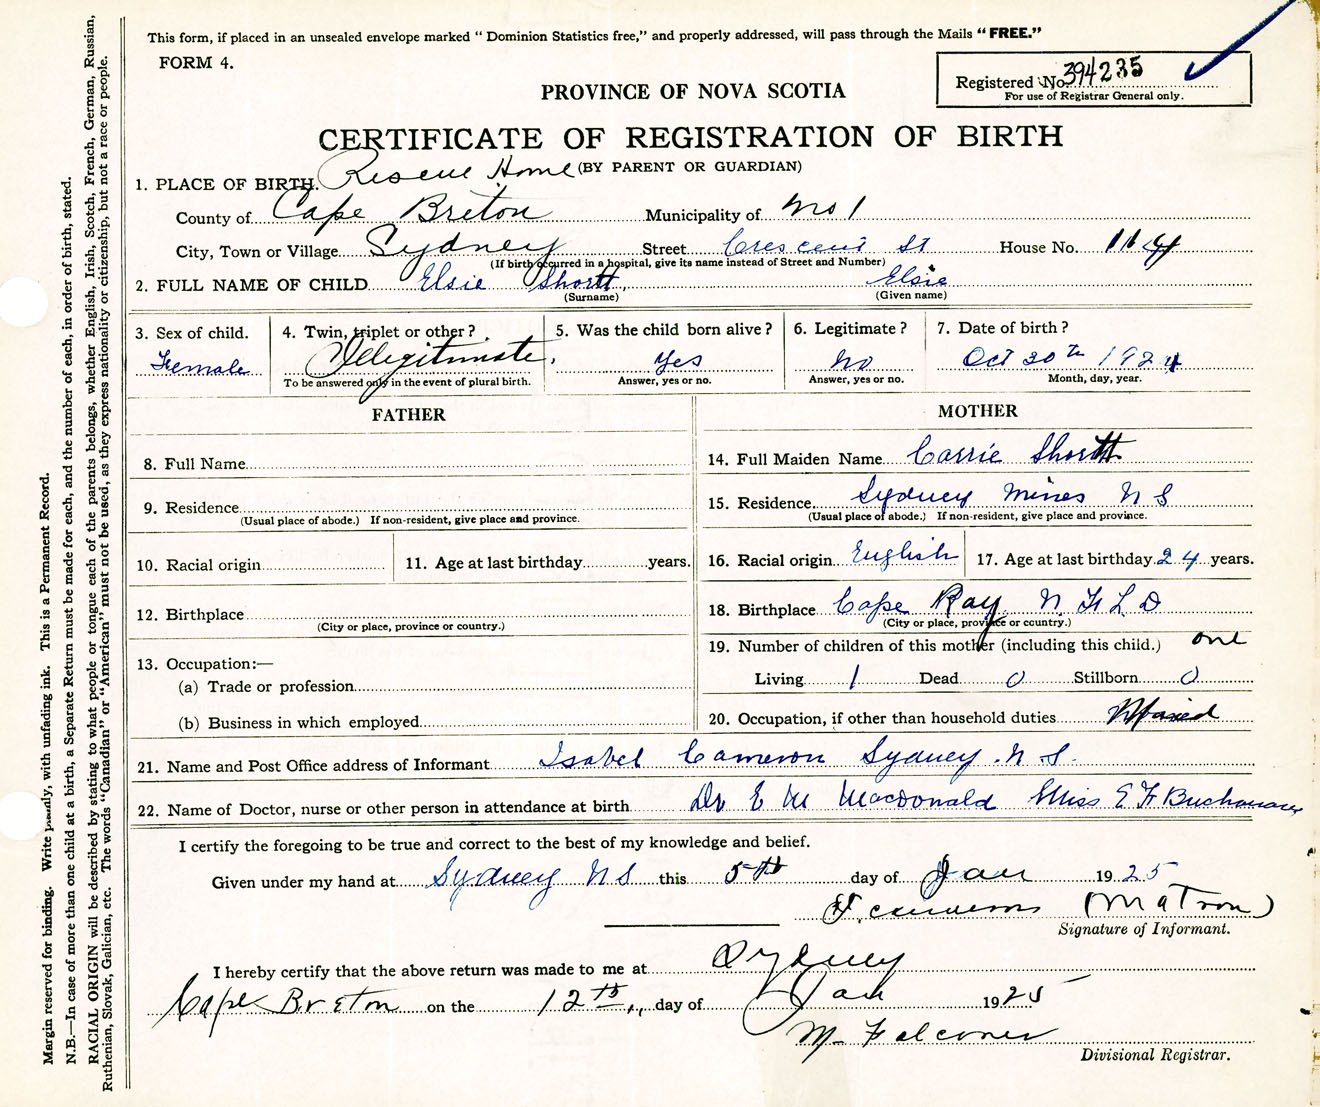 This form, if placed in an unsealed envelope marked “ Dominion Statistics free,” and properly addressed, will pass through the Mails “ FREE.”
FORM 4.
Registered No. 394235
For use of Registrar General only.
PROVINCE OF NOVA SCOTIA
CERTIFICATE OF REGISTRATION OF BIRTH
(BY PARENT OR GUARDIAN)
1. PLACE OF BIRTH. Rescue Home
County of Cape Breton Municipality of No 1
City, Town or Village Sydney Street Crescent St House No. 114
(If birth occurred in a hospital, give its name instead of Street and Number)
2. FULL NAME OF CHILD Elsie Shortt, Elsie
(Surname) (Given name)
3. Sex of child. 4. Twin, triplet or other ? 5. Was the child born alive ? 6. Legitimate ? 7. Date of birth ?
Female Illegitimate. Yes No Oct 30th 1924
To be answered only in the event of plural birth. Answer, yes or no. Answer, yes or no. Month, day, year.
FATHER
8. Full Name
9. Residence
(Usual place of abode.) If non-resident, give place and province.
10. Racial origin 11. Age at last birthday years.
12. Birthplace
(City or place, province or country.)
13. Occupation:—
(a) Trade or profession
(b) Business in which employed
MOTHER
14. Full Maiden Name Carrie Shortt
15. Residence Sydney Mines N S
(Usual place of abode.) If non-resident, give place and province.
16. Racial origin English 17. Age at last birthday 24 years.
18. Birthplace Cape Ray N F L D
(City or place, province or country.)
19. Number of children of this mother (including this child.) one
Living 1 Dead 0 Stillborn 0
20. Occupation, if other than household duties
21. Name and Post Office address of Informant Isabel Cameron Sydney . N S.
22. Name of Doctor, nurse or other person in attendance at birth Dr E M Macdonald Miss E F Buchanan
I certify the foregoing to be true and correct to the best of my knowledge and belief.
Given under my hand at Sydney N S this 5th day of Jan 1925
(Matron)
Signature of Informant.
I hereby certify that the above return was made to me at Sydney
Cape Breton on the 12th day of Jan 1925
M. Falconer
Divisional Registrar.
Margin reserved for binding. Write plainly, with unfading ink. This is a Permanent Record.
N.B.—In case of more than one child at a birth, a Separate Return must be made for each, and the number of each, in order of birth, stated.
RACIAL ORIGIN will be described by stating to what people or tongue each of the parents belongs, whether English, Irish, Scotch, French, German, Russian,
Ruthenian, Slovak, Galician, etc. The words “Canadian” or “American” must not be used, as they express nationality or citizenship, but not a race or people.